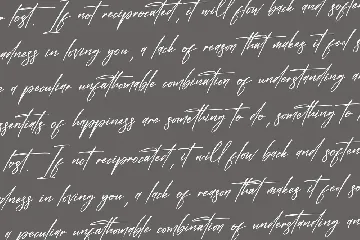 lost. If not reciprocated, it will flow back and soften
madness in loving you, a lack of reason that makes it feel s
a peculiar unfathomable combination of understanding
essentials of happiness are something to do, something to
lost. If not reciprocated, it will flow back and soften
madness in loving you, a lack of reason that makes it feel so
a peculiar unfathomable combination of understanding an